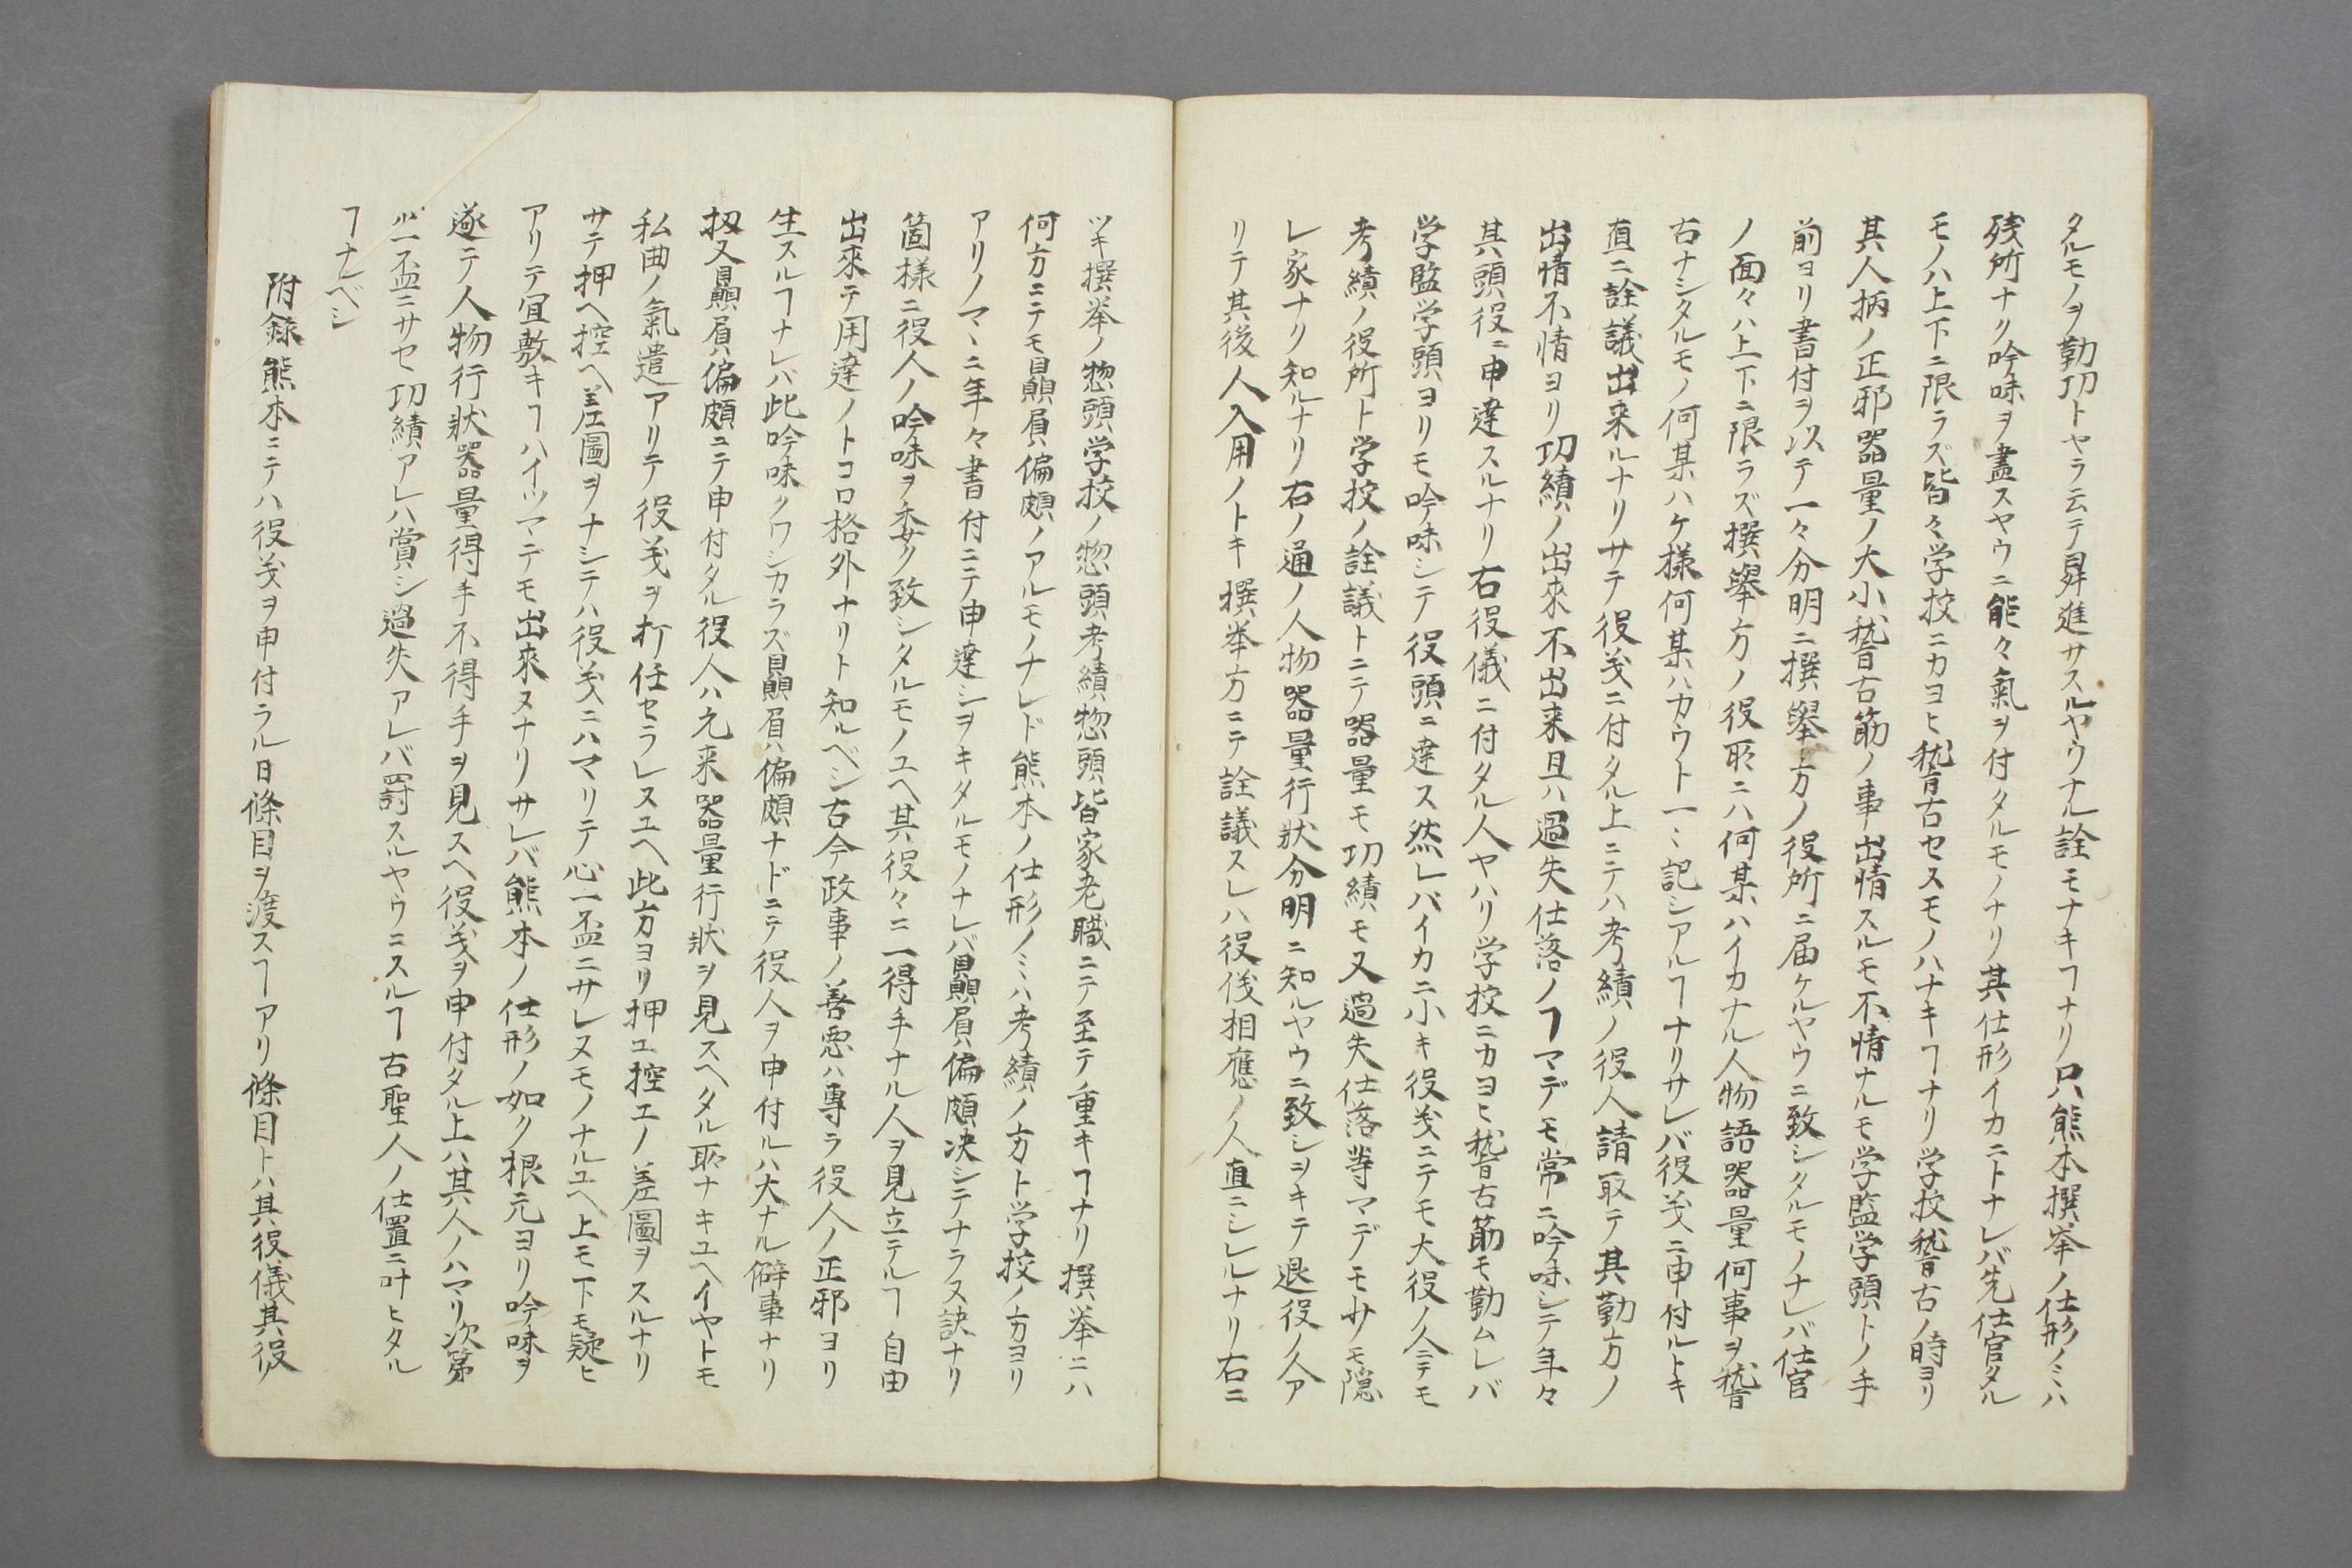 タルモノヲ勤功トヤラ云テ昇進サスルヤウナル詮モナキヿナリ只熊本撰挙ノ仕形ノミハ
残所ナク吟味ヲ盡スヤウニ能々氣ヲ付タルモノナリ其仕形イカニトナレバ先仕官タル
モノハ上下ニ限ラズ皆々学校ニカヨヒ稽古セスモノハナキヿナリ学校稽古ノ時ヨリ
其人柄ノ正邪器量ノ大小稽古筋ノ事出情スルモ不情ナルモ学監学頭トノ手
前ヨリ書付ヲ以テ一々分明ニ撰擧方ノ役所ニ届ケルヤウニ致シタルモノナレバ仕官
ノ面々ハ上下ニ限ラズ撰擧方ノ役所ニハ何某ハイカナル人物語器量何事ヲ稽
古ナシタルモノ何某ハケ様何某ハカウト一〻記シアルヿナリサレバ役義ニ申付ルトキ
直ニ詮議出来ルナリサテ役義ニ付タル上ニテハ考績ノ役人請取テ其勤方ノ
出情不情ヨリ功績ノ出來不出来且ハ過失仕落ノヿマデモ常ニ吟味シテ年々
其頭役ニ申達スルナリ右役儀ニ付タル人ヤハリ学校ニカヨヒ稽古筋モ勤ムレバ
学監学頭ヨリモ吟味シテ役頭ニ達ス然レバイカニ小キ役義ニテモ大役ノ人ニテモ
考績ノ役所ト学校ノ詮議トニテ器量モ功績モ又過失仕落等マデモ少ノモ隠
レ家ナク知ルナリ右ノ通ノ人物器量行狀分明ニ知ルヤウニ致シヲキテ退役ノ人ア
リテ其後人入用ノトキ撰挙方ニテ詮議スレハ役後相應ノ人直ニシレルナリ右ニ
ツキ撰挙ノ惣頭学校ノ惣頭考績惣頭皆家老職ニテ至テ重キヿナリ撰挙ニハ
何方ニテモ贔屓偏頗ノアルモノナレド熊本ノ仕形ノミハ考績ノ方ト学校ノ方ヨリ
アリノマヽニ年々書付ニテ申達シヲキタルモノナレバ贔屓偏頗決シテナラス訣ナリ
箇様ニ役人ノ吟味ヲ委ク致シタルモノユヘ其役々ニ一得手ナル人ヲ見立テルヿ自由
出來テ用達ノトコロ格外ナリト知ルベシ古今政事ノ善悪ハ專ラ役人ノ正邪ヨリ
生スルヿナレバ此吟味クワシカラズ贔屓ハ偏頗ナドニテ役人ヲ申付ルハ大ナル僻事ナリ
扨又贔屓ハ偏頗ニテ申付タル役人ハ元来器量行狀ヲ見スヘタル所ナキユヘイヤトモ
私曲ノ氣遣アリテ役義ヲ打任セラレヌユヘ此方ヨリ押ユ控エノ差圖ヲスルナリ
サテ押ヘ控ヘ差圖ヲナシテハ役義ニハマリテ心一盃ニサレヌモノナルユヘ上モ下モ疑ヒ
アリテ宜敷キヿハイツマデモ出來ヌナリサレバ熊本ノ仕形ノ如ク根元ヨリ吟味ヲ
遂テ人物行狀器量得手不得手ヲ見スヘ役義ヲ申付タル上ハ其人ノハマリ次第
心一盃ニサセ功績アレハ賞シ過失アレバ罰スルヤウニスルヿ古聖人ノ仕置ニ叶ヒタル
ヿナルベシ
附録熊本ニテハ役義ヲ申付ラル日條目ヲ渡スヿアリ條目トハ其役儀其役